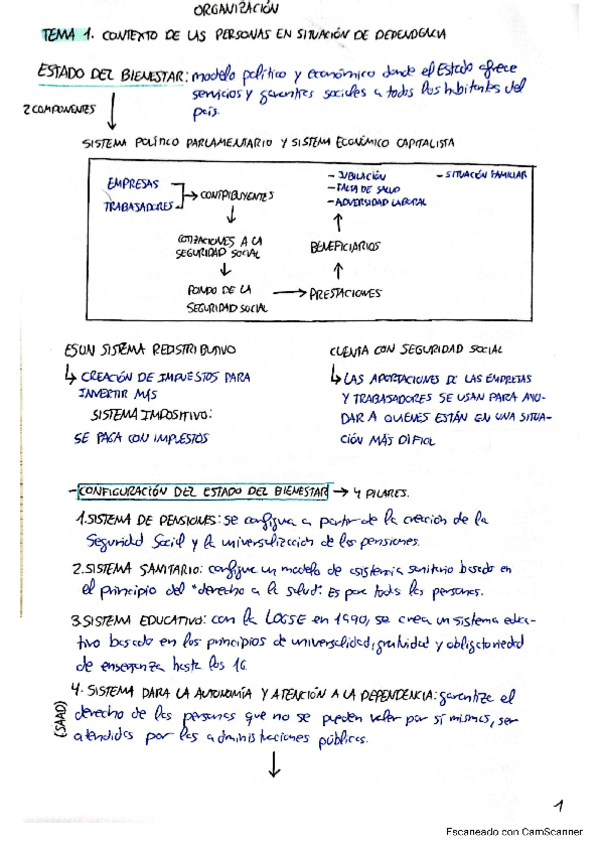 ORGANIZACIÓN
TEMA 1. CONTEXTO DE LAS PERSONAS EN SITUACIÓN DE DEPENDENCIA
ESTADO DEL BIENESTAR: modelo político y económico donde el Estado ofrece
servicios y garantías sociales a todos los habitantes del
país.
2 COMPONENTES
SISTEMA POLÍTICO PARLAMENTARIO Y SISTEMA ECONÓMICO CAPITALISTA
EMPRESAS
TRABAJADORES
→ CONTRIBUYENTES
- JUBILACIÓN
- FALTA DE SALUD
- ADVERSIDAD LABORAL
- SITUACIÓN FAMILIAR
COTIZACIONES A LA
SEGURIDAD SOCIAL
BENEFICIARIOS
FONDO DE LA
SEGURIDAD SOCIAL
→ PRESTACIONES
ES UN SISTEMA REDISTRIBUTIVO
↳ CREACIÓN DE IMPUESTOS PARA
INVERTIR MÁS
SISTEMA IMPOSITIVO:
SE PAGA CON IMPUESTOS
CUENTA CON SEGURIDAD SOCIAL
↳ LAS APORTACIONES DE LAS EMPRESAS
Y TRABAJADORES SE USAN PARA AYU-
DAR A QUIENES ESTÁN EN UNA SITUA-
CIÓN MÁS DIFICIL
- CONFIGURACIÓN DEL ESTADO DEL BIENESTAR → 4 PILARES.
1. SISTEMA DE PENSIONES: se configura a partir de la creación de la
Seguridad Social y la universalización de las pensiones.
2. SISTEMA SANITARIO: configura un modelo de asistencia sanitaria basado en
el principio del "derecho a la salud". Es para todas las personas.
3. SISTEMA EDUCATIVO: con la LOGSE en 1990, se crea un sistema educa-
tivo basado en los principios de universalidad, gratuidad y obligatoriedad
de enseñanza hasta los 16.
4. SISTEMA PARA LA AUTONOMÍA Y ATENCIÓN A LA DEPENDENCIA: garantiza el
(SAAD)
derecho de las personas que no se pueden valer por sí mismas, ser
atendidas por las administraciones públicas.
1
Escaneado con CamScanner